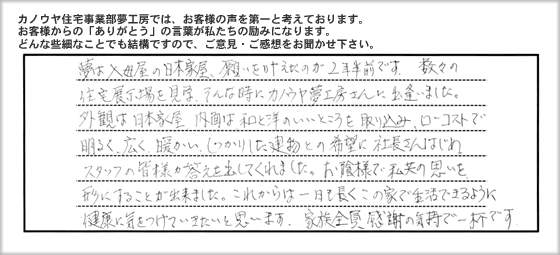 カノウヤ住宅事業部夢工房では、お客様の声を第一と考えております。
お客様からの「ありがとう」の言葉が私たちの励みになります。
どんな些細なことでも結構ですので、ご意見・ご感想をお聞かせ下さい。
夢は入母屋の日本家屋、願いを叶えたのが2年半前です。数々の
住宅展示場を見学、そんな時にカノウヤ夢工房さんに出逢いました。
外観は日本家屋 内面は和と洋のいいところを取り込み、ローコストで
明るく、広く、暖かい、しっかりした建物との希望に社長さんはじめ
スタッフの皆様が答えを出してくれました。お陰様で私共の思いを
形にすることが出来ました。これからは一日も長くこの家で生活できるように
健康に気をつけていきたいと思います。家族全員感謝の気持で一杯です